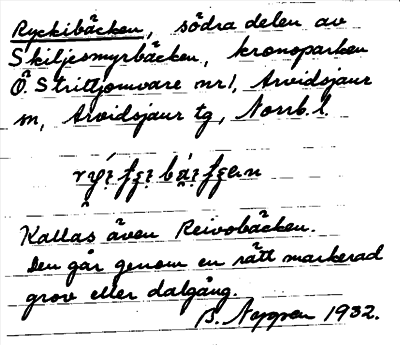 Ryckibäcken, södra delen av
Skiljesmyrbäcken, kronoparken
Ö. Strittjomvare nr 1, Arvidsjaur
sn, Arvidsjaur tg, Norrb. l.
Kallas även Reivobäcken.
Den går genom en rätt markerad
grov eller dalgång.
B. Neppen 1932.